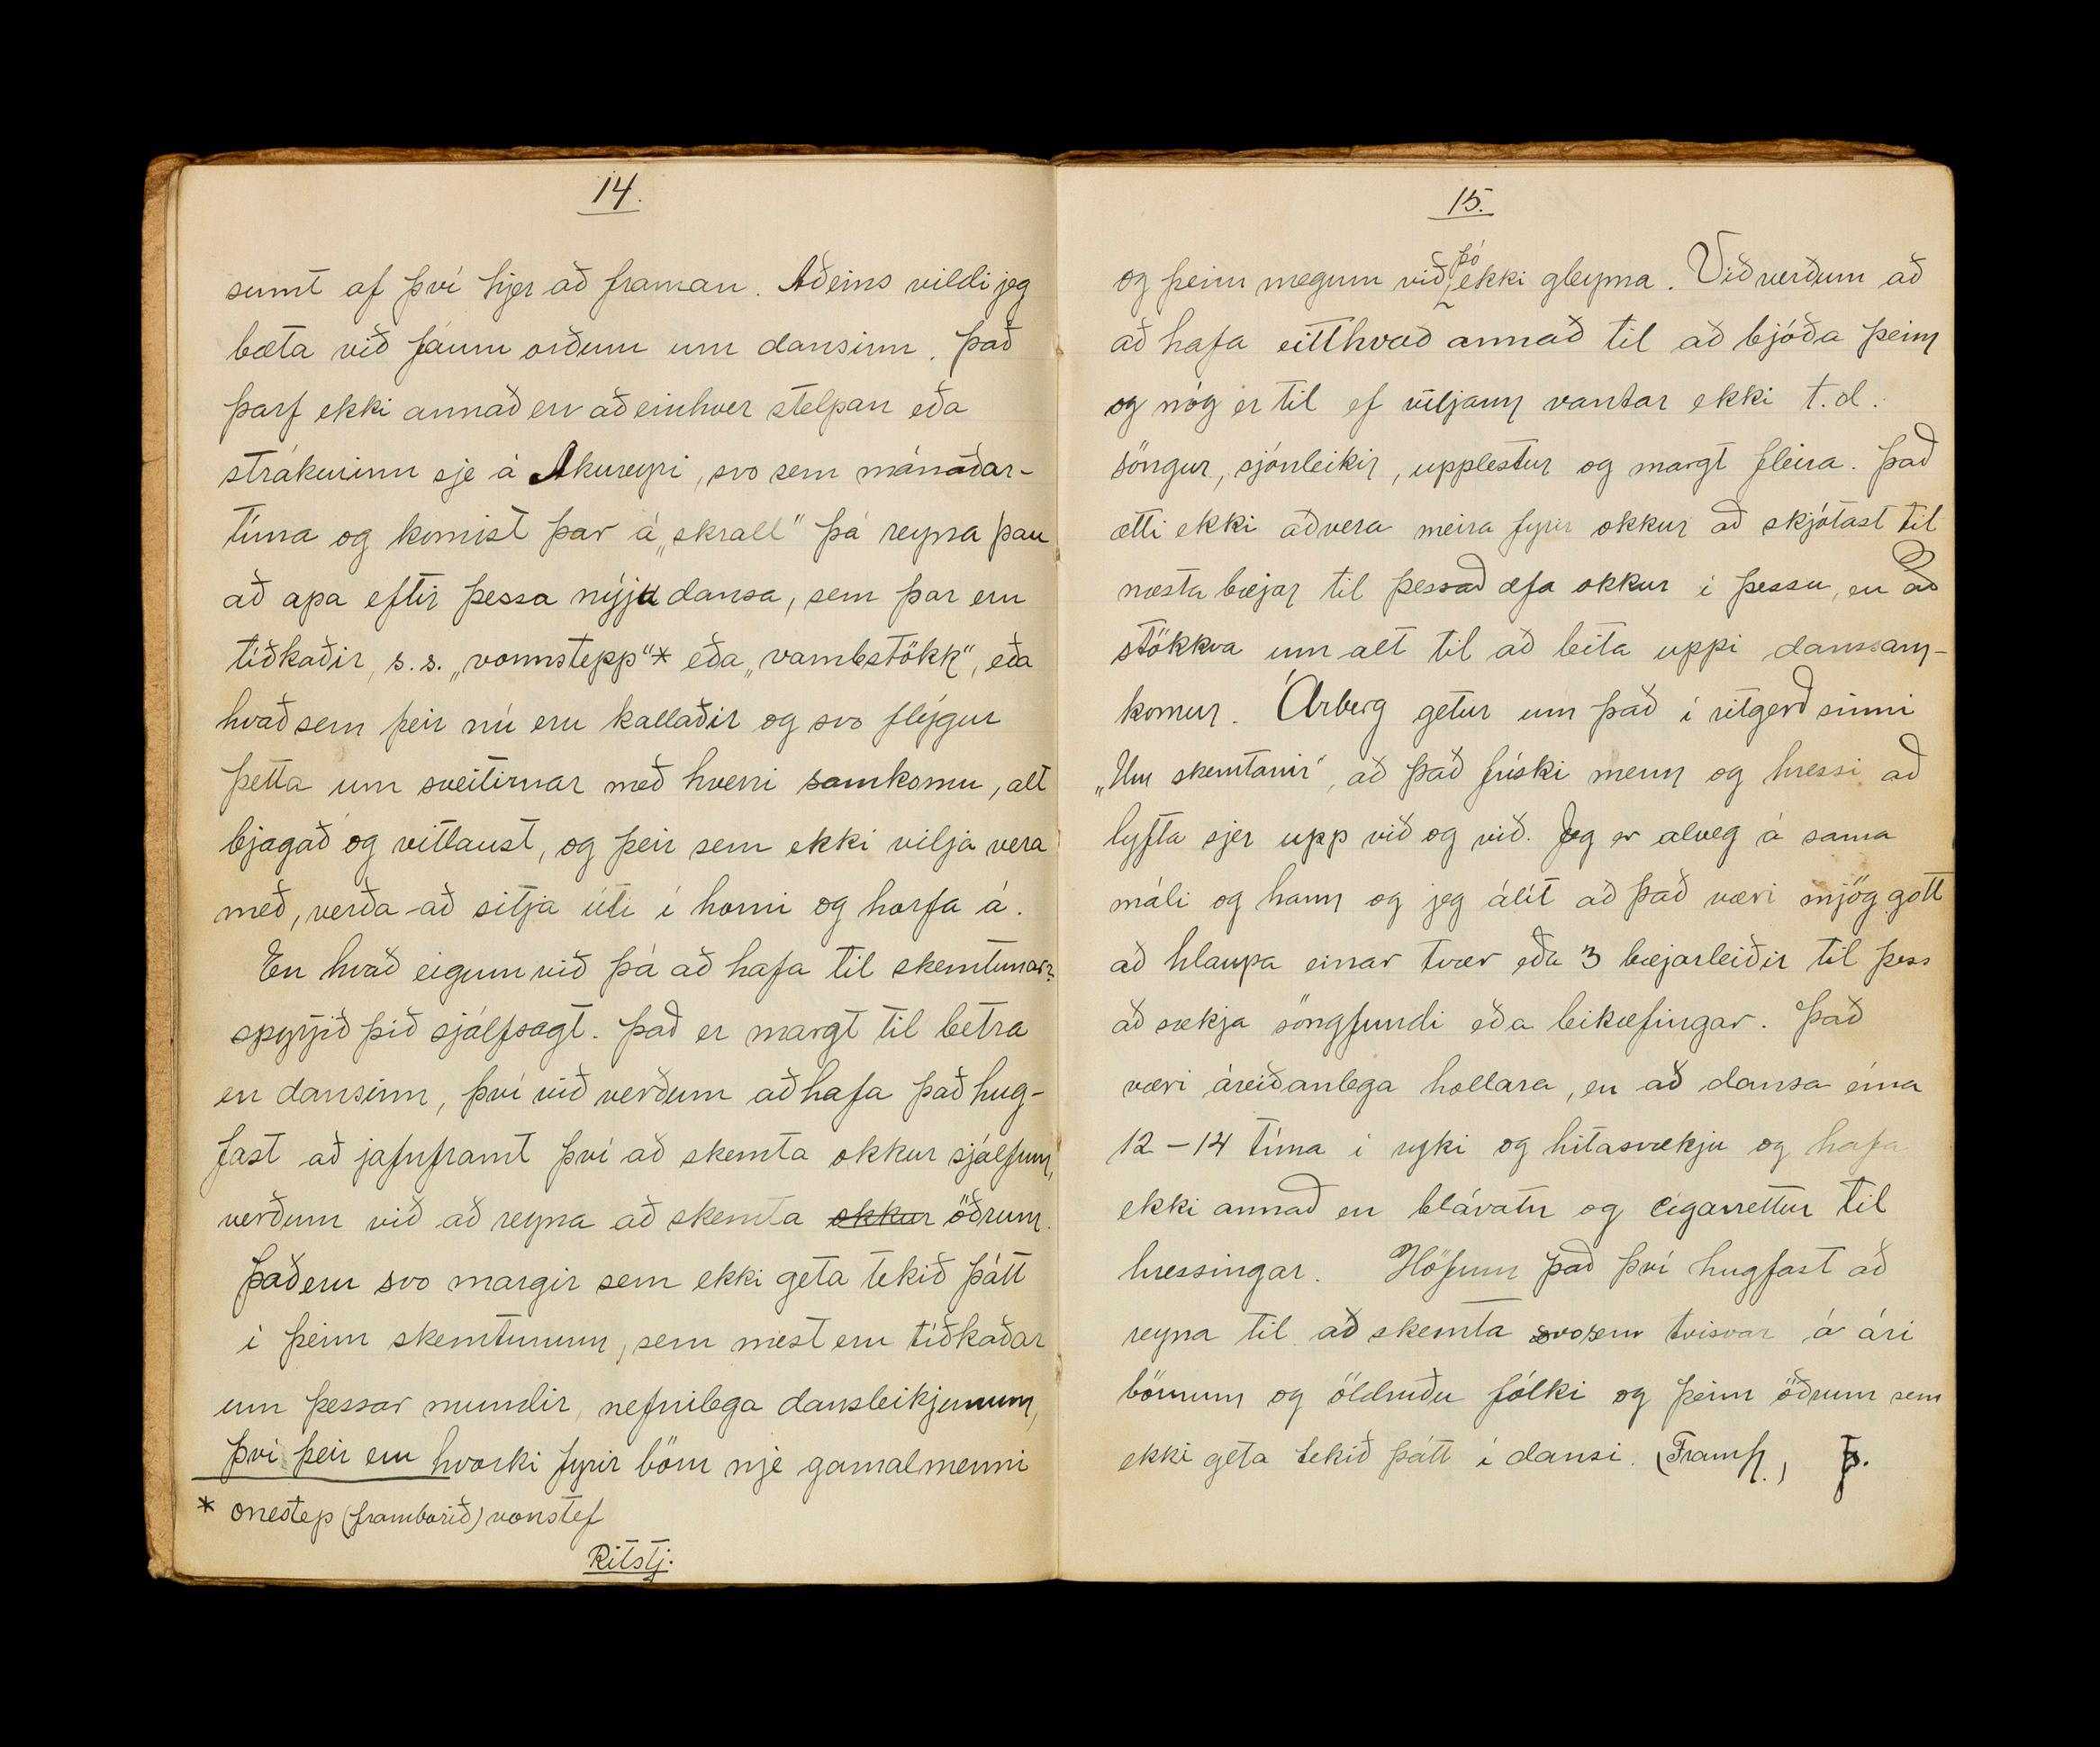 14.
sumt af því hjer að framan. Aðeins vildi jeg
bæta við fáum orðum um dansinn. Það
þarf ekki annað en að einhver stelpan eða
strákurinn sje á Akureyri, svo sem mánaðar-
tíma og komist þar á „skrall" þá reyna þau
að apa eftir þessa nýju dansa, sem þar eru
tíðkaðir, s.s. „vonnstepp"* eða „vambstökk", eða
hvað sem þeir nú eru kallaðir og svo flýgur
þetta um sveitirnar með hverri samkomu, alt
bjagað og vitlaust, og þeir sem ekki vilja vera
með, verða að sitja úti í horni og horfa á.
En hvað eigum við þá að hafa til skemtunar?
spyrjið þið sjálfsagt. Það er margt til betra
en dansinn, því við verðum að hafa það hug-
fast að jafnframt því að skemta okkur sjálfum,
verðum við að reyna að skemta okkur öðrum.
Það eru svo margir sem ekki geta tekið þátt
í þeim skemtunum, sem mest eru tíðkaðar
um þessar mundir, nefnilega dansleikjunum,
því þeir eru hvorki fyrir börn nje gamalmenni
* onestep (framborið) vonstef
Ritstj.
15.
og þeim megum við þó ekki gleyma. Við verðum að
að hafa eitthvað annað til að bjóða þeim
og nóg er til ef viljann vantar ekki t.d.
söngur, sjónleikir, upplestur og margt fleira. Það
ætti ekki að vera meira fyrir okkur að skjótast til
næsta bæjar til þess að æfa okkur í þessu, en að
stökkva um alt til að leita uppi danssam-
komur. Árberg getur um það í ritgerð sinni
„Um skemtanir", að það fríski menn og hressi að
lyfta sjer upp við og við. Jeg er alveg á sama
máli og hann og jeg álít að það væri mjög gott
að hlaupa einar tvær eða 3 bæjarleiðir til þess
að sækja söngfundi eða leikæfingar. Það
væri áreiðanlega hollara, en að dansa eina
12-14 tíma í ryki og hitasvækju og hafa
ekki annað en blávatn og cigarrettur til
hressingar. Höfum það því hugfast að
reyna til að skemta svosem tvisvar á ári
börnum og öldruðu fólki og þeim öðrum sem
ekki geta tekið þátt í dansi. (Framh.) Þ.